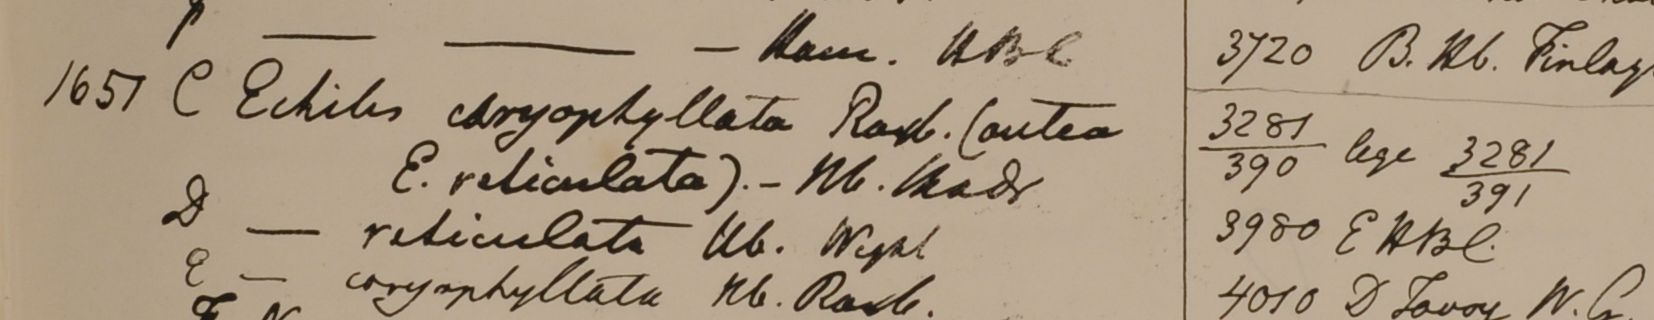 — — — Ham. HBC
1651 C Echites caryophyllata Roxb. (antea
E. reticulata). – Hb. Madr
D — reticulata Hb. Wight
E — caryophyllata Hb. Roxb.
3720 B. Hb. Finlay
3281/390 lege 3281/391
3980 E HBC.
4010 D Tavoy W. G.